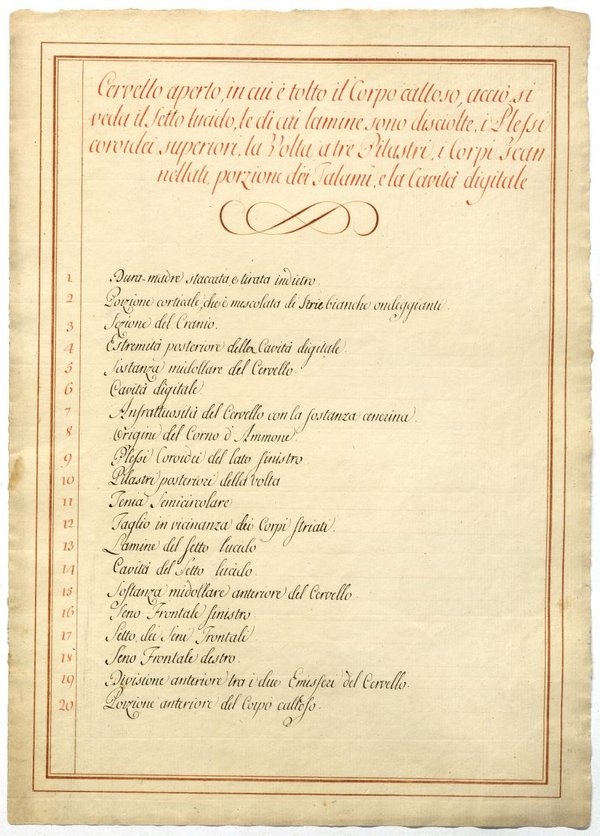 Cervello aperto, in cui è tolto il Corpo calloso, acciò si
veda il Setto lucido, le di cui lamine sono disciolte, i Plessi
coroidei superiori, la Volta a tre Pilastri, i Corpi Scan
nellati, porzione dei Talami, e la Cavità digitale
1 Dura-madre staccata e tirata indietro.
2 Porzione corticale, che è miscolata di Strie bianche ondeggianti.
3 Sezione del Cranio.
4 Estremità posteriore della Cavità digitale.
5 Sostanza midollare del Cervello.
6 Cavità digitale
7 Anfrattuosità del Cervello con la sostanza cenerina.
8 Origine del Corno d'Ammone.
9 Plessi Coroidei del lato sinistro
10 Pilastri posteriori della volta
11 Tenia Semicircolare
12 Taglio in vicinanza dei Corpi striati.
13 Lamine del Setto lucido
14 Cavità del Setto lucido
15 Sostanza midollare anteriore del Cervello.
16 Seno Frontale sinistro.
17 Setto, dei Seni Frontali
18 Seno Frontale destro.
19 Divisione anteriore tra i due Emisferi del Cervello.
20 Porzione anteriore del Corpo calloso.